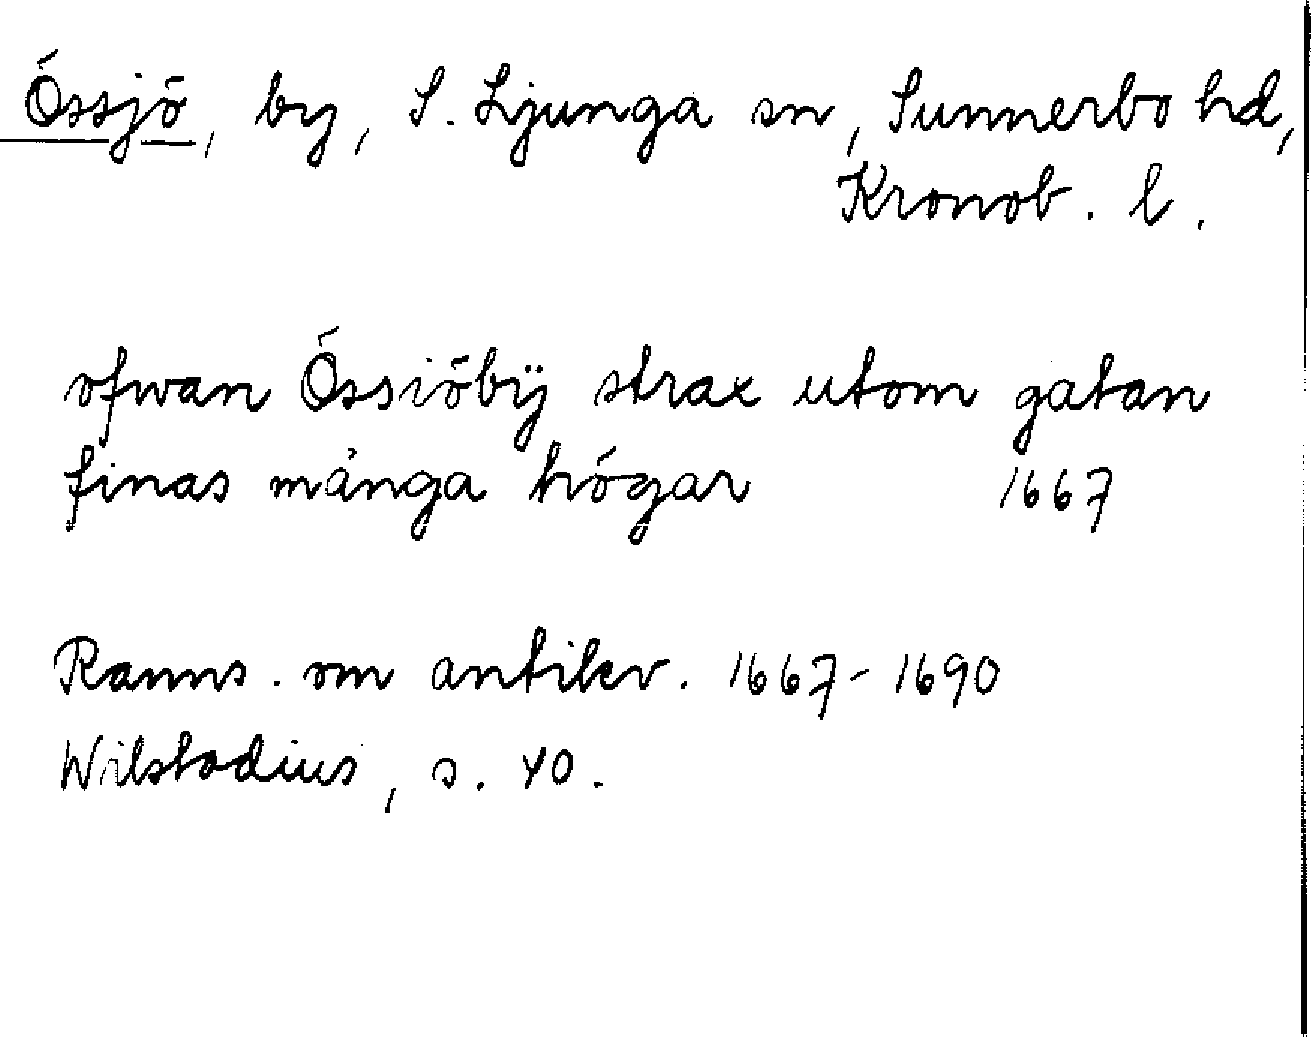 Össjö, by, S. Ljunga sn, Sunnerbo hd,
Kronob. l.
ofwan Össiöbÿ strax utom gatan
finas många högar 1667
Ranns. om antikv. 1667-1690
Wilstadius, s. 40.